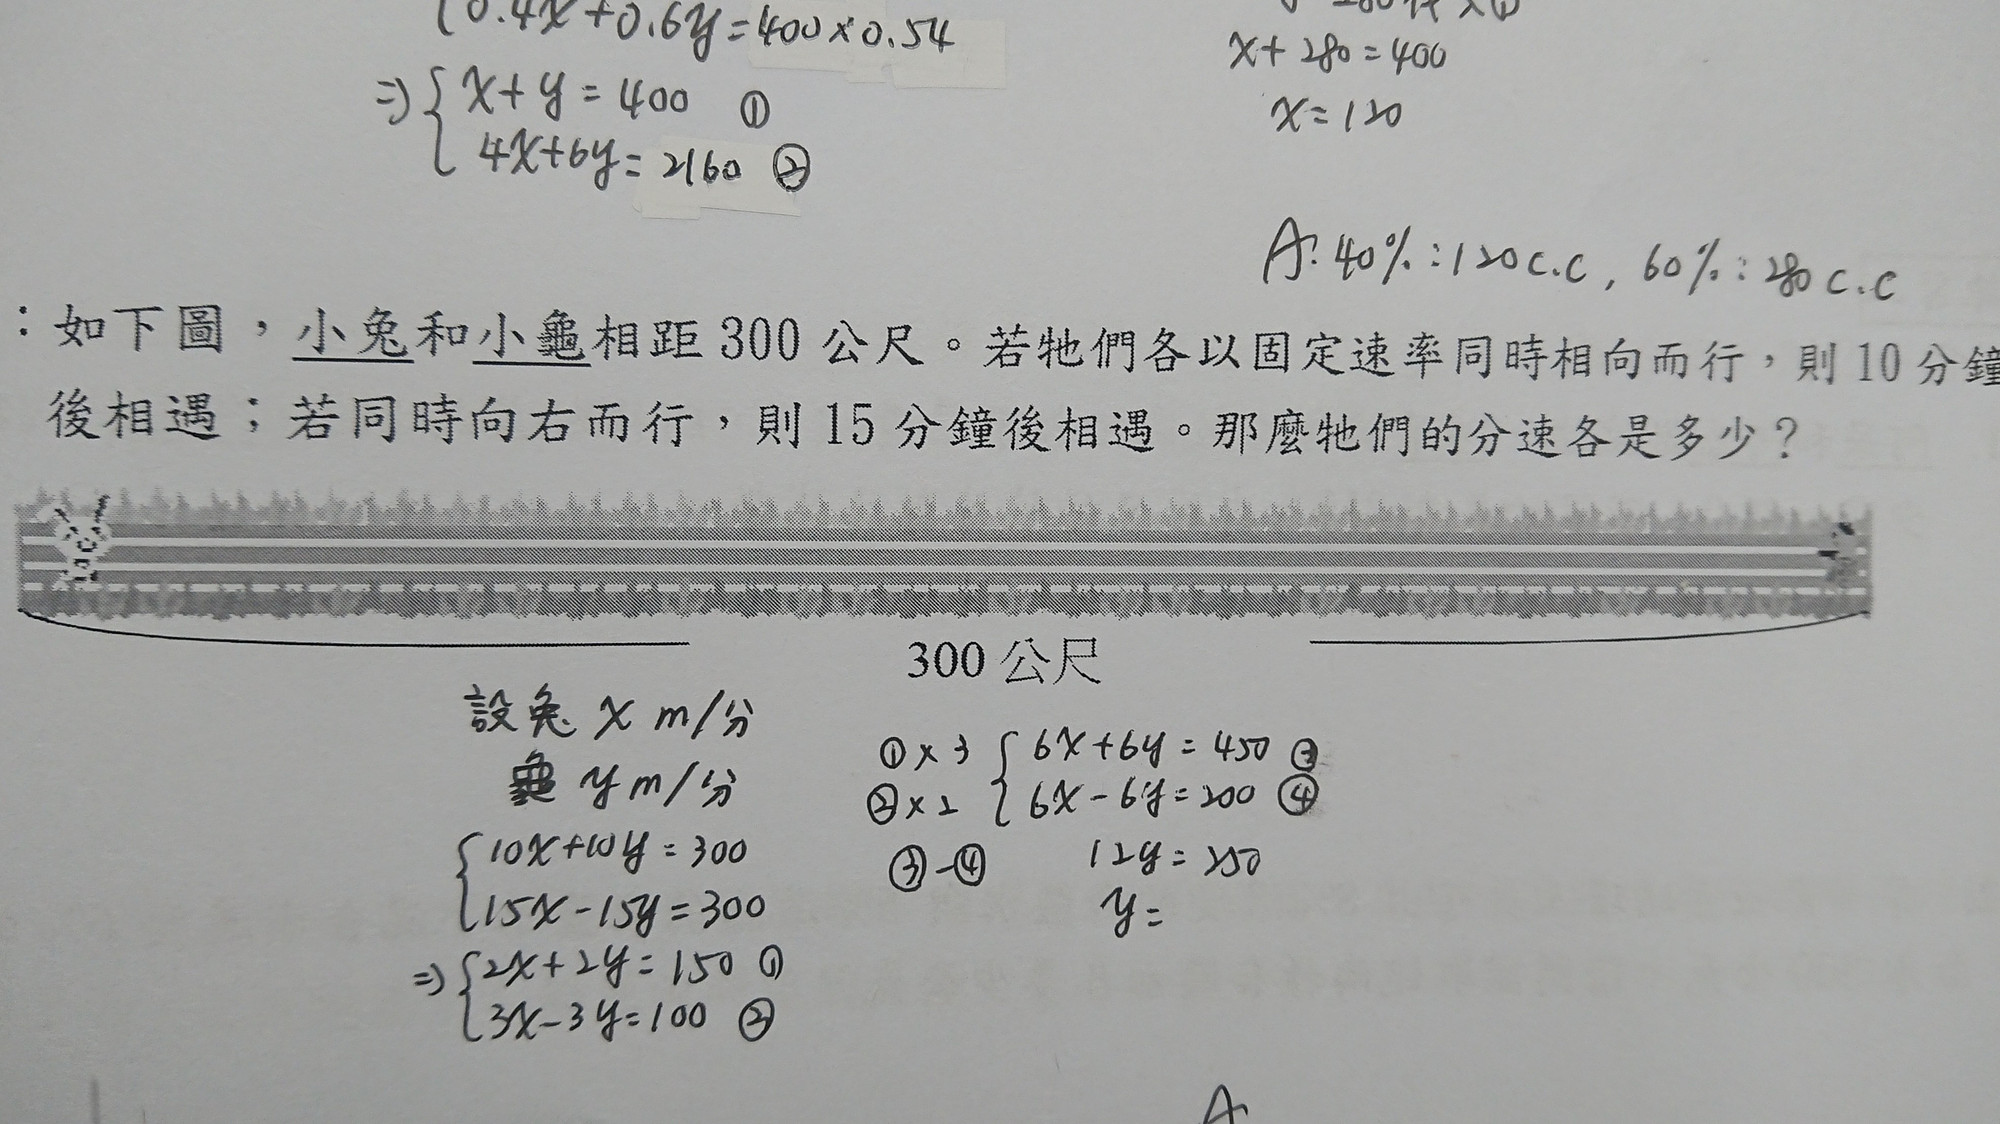 0.4x+0.6y=400×0.54
⇒ x+y=400 ①
4x+6y=2160 ②
x+280=400
x=120
A: 40%:120c.c, 60%:280c.c
:如下圖,小兔和小龜相距300公尺。若牠們各以固定速率同時相向而行,則10分鐘
後相遇;若同時向右而行,則15分鐘後相遇。那麼牠們的分速各是多少?
300公尺
設兔 x m/分
龜 y m/分
10x+10y=300
15x-15y=300
⇒ 2x+2y=150 ①
3x-3y=100 ②
①×3 6x+6y=450 ③
②×2 6x-6y=200 ④
③-④ 12y=250
y=
A